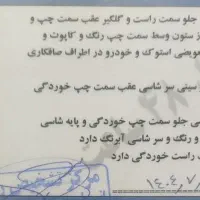 جلو سمت راست و گلگیر عقب سمت چپ و
ز ستون وسط سمت چپ رنگ و کاپوت و
عویضی استوک و خودرو در اطراف صافکاری
سینی سر شاسی عقب سمت چپ خوردگی
ی جلو سمت چپ خوردگی و پایه شاسی
و رنگ و سر شاسی آبرنگ دارد
راست خوردگی دارد
۱۴۰۴,۷/